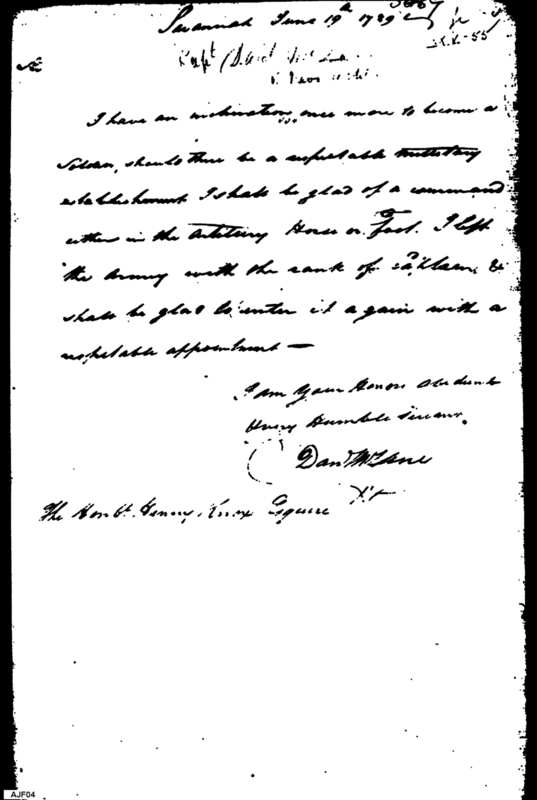 Savannah June 19th 1789
Capt
Sir
I have an inclination once more to become a
Soldier, should there be a respectable Military
establishment I shall be glad of a command
either in the Artillery Horse or Foot. I left
the Army with the rank of Captain, &
shall be glad to enter it again with a
respetable appointment —
I am Your Honors Obedient
& very Humble Servant.
Danl McLane
The Honbl. Henry Knox Esquire
AJF04